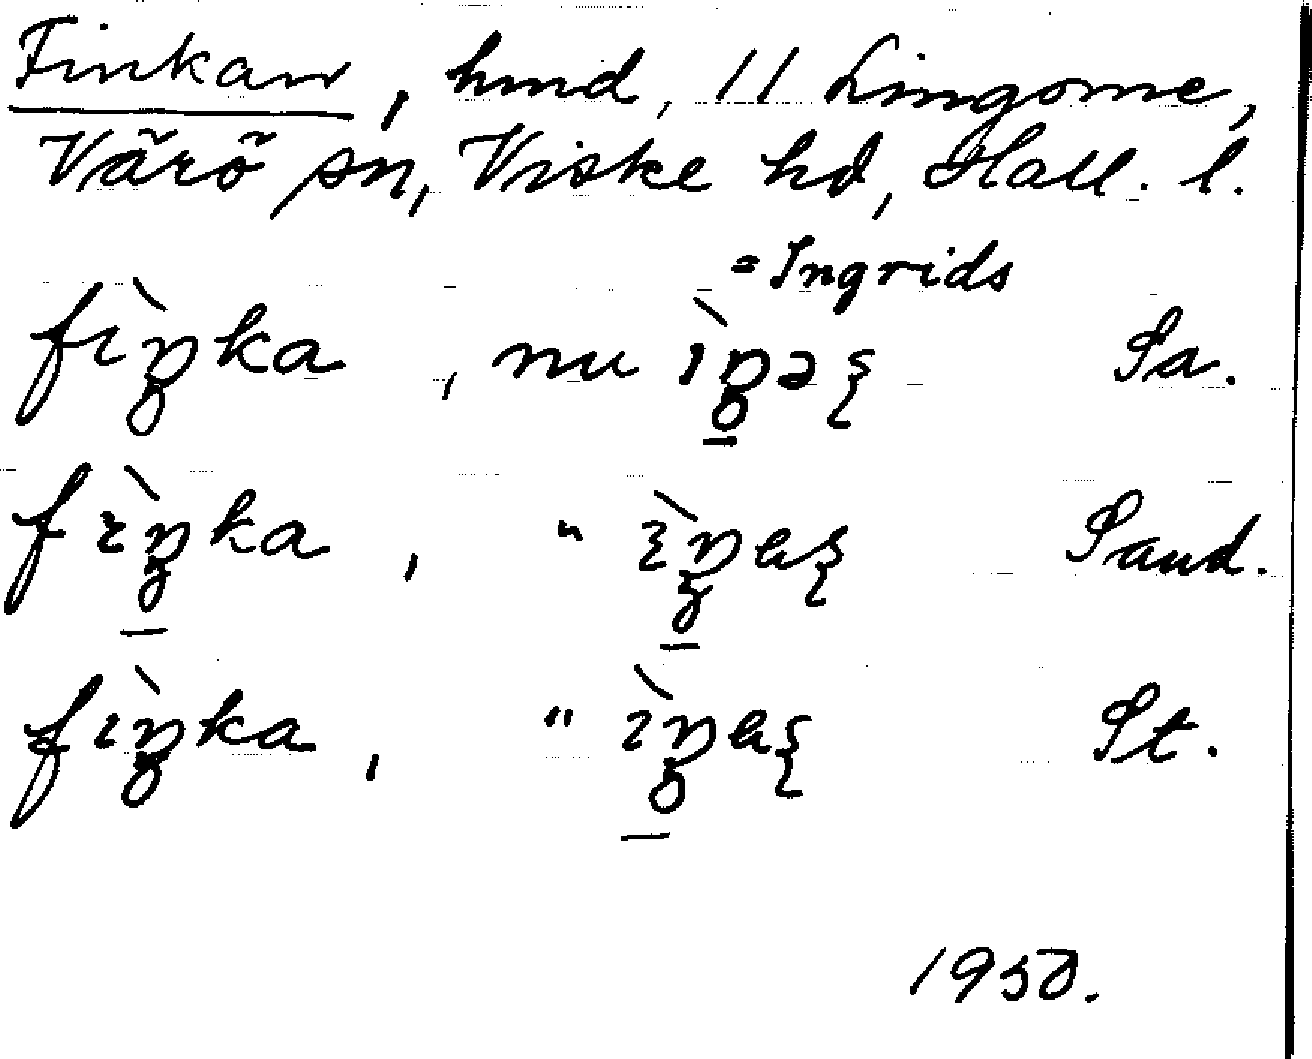 Finkan, hmd, 11 Lingome,
Värö sn, Viske hd, Hall. l.
= Ingrids
fìŋka, nu ìŋəs Sa.
fìŋka, " ìŋas Sand.
fìŋka, " ìŋas St.
1950.